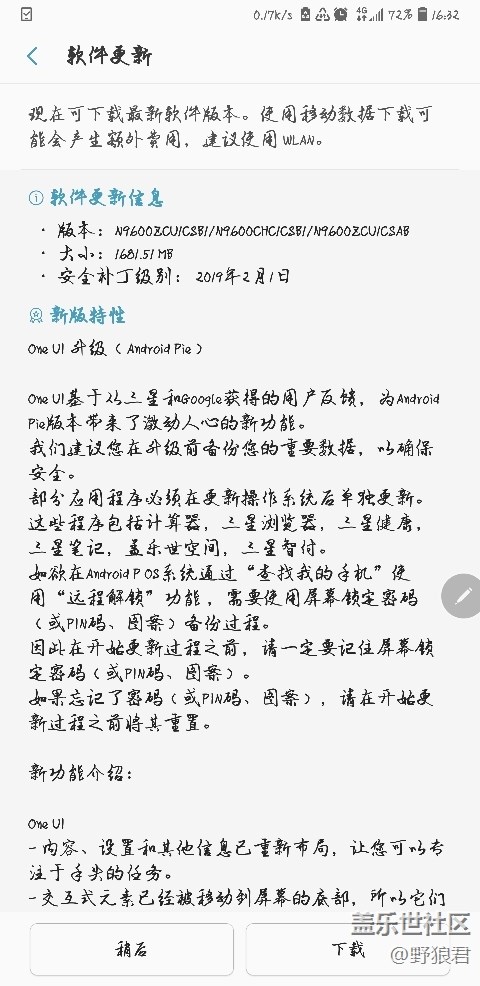 0.17K/s 4G 72% 16:32
软件更新
现在可下载最新软件版本。使用移动数据下载可
能会产生额外费用，建议使用 WLAN。
软件更新信息
· 版本： N9600ZCU1CSB1/N9600CHC1CSB1/N9600ZCU1CSAB
· 大小： 1681.51 MB
· 安全补丁级别： 2019年2月1日
新版特性
One UI 升级（Android Pie）
One UI基于从三星和Google获得的用户反馈，为Android
Pie版本带来了激动人心的新功能。
我们建议您在升级前备份您的重要数据，以确保
安全。
部分应用程序必须在更新操作系统后单独更新。
这些程序包括计算器，三星浏览器，三星健康，
三星笔记，盖乐世空间，三星智付。
如欲在Android P OS系统通过“查找我的手机”使
用“远程解锁”功能，需要使用屏幕锁定密码
（或PIN码、图案）备份过程。
因此在开始更新过程之前，请一定要记住屏幕锁
定密码（或PIN码、图案）。
如果忘记了密码（或PIN码、图案），请在开始更
新过程之前将其重置。
新功能介绍：
One UI
- 内容、设置和其他信息已重新布局，让您可以专
注于手头的任务。
- 交互式元素已经被移动到屏幕的底部，所以它们
稍后
下载
盖乐世社区
@野狼君